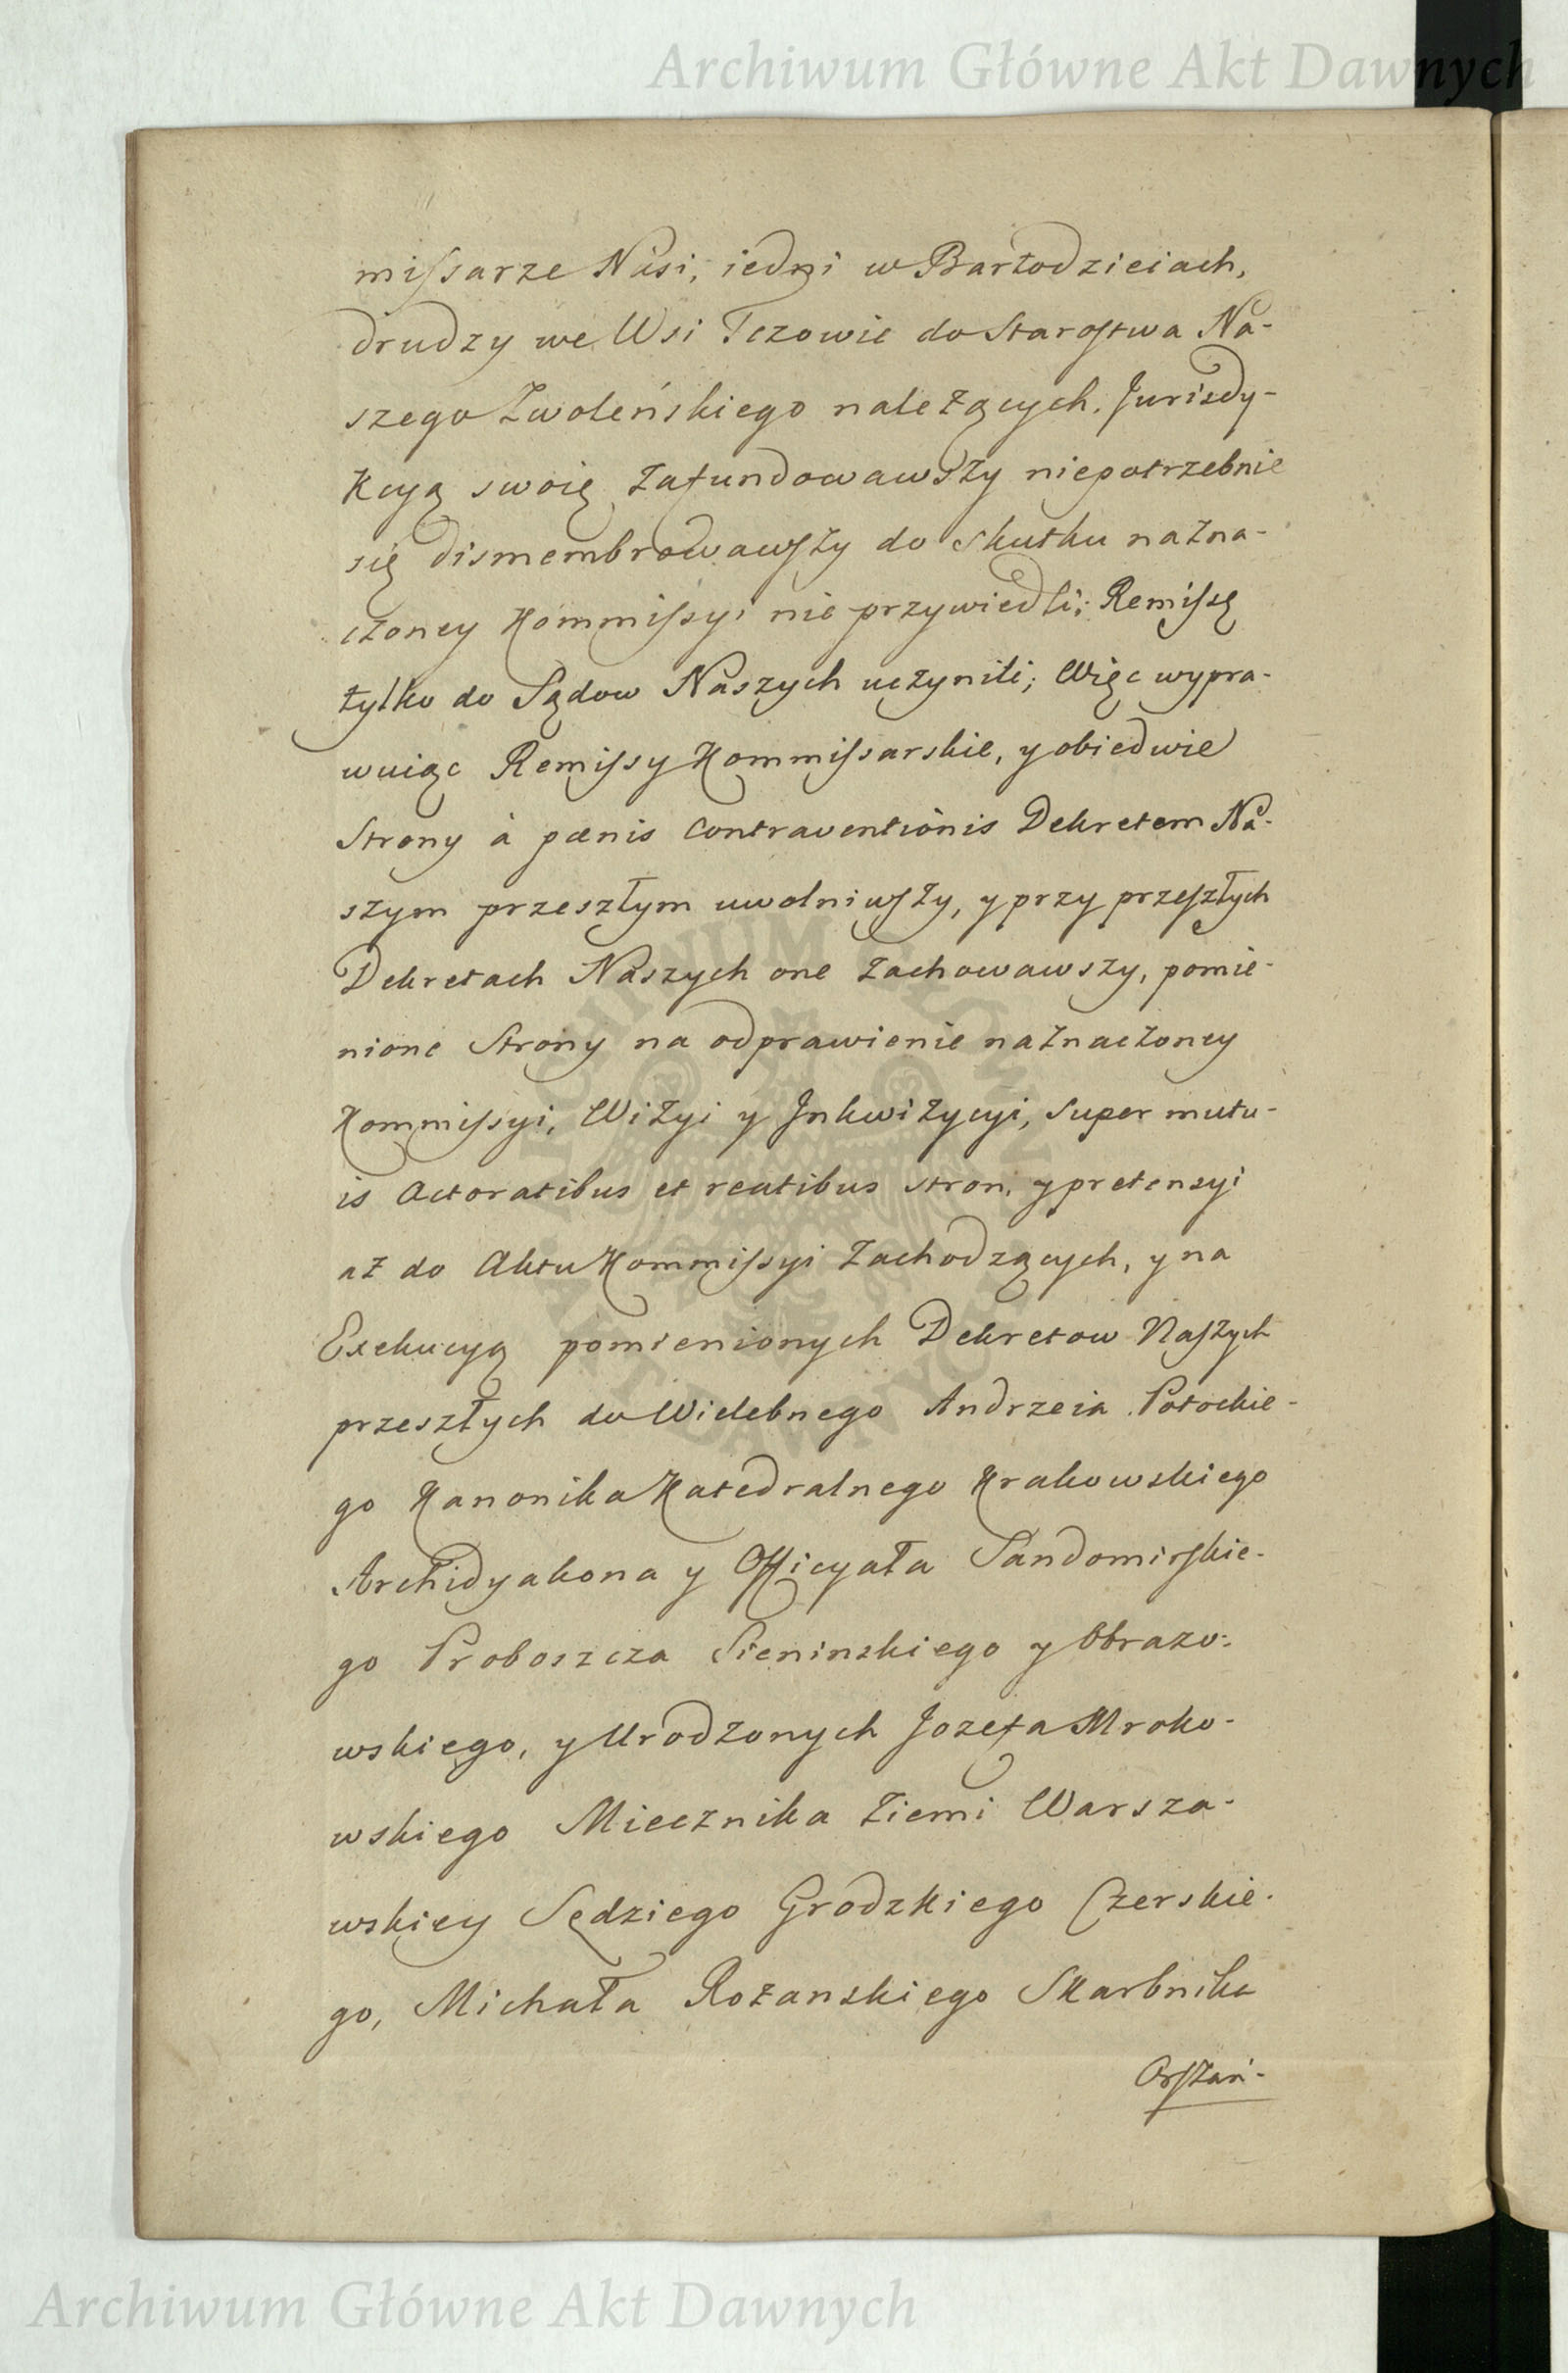 Archiwum Główne Akt Dawnych
missarze Nasi, iedni w Bartodzieiach,
drudzy we Wsi Tczowie do Starostwa Na-
szego Zwoleńskiego należących, Jurisdy-
kcyą swoię zafundowawszy niepotrzebnie
się dismembrowawszy do skutku nazna-
czoney Kommissyi nie przywiedli; Remissę
tylko do Sądow Naszych uczynili; Więc wypra-
wuiąc Remissy Kommissarskie, y obiedwie
Strony à pœnis Contraventiònis Dekretem Na-
szym przeszłym uwolniwszy, y przy przeszłych
Dekretach Naszych one zachowawszy, pomie-
nione Strony na odprawienie naznaczoney
Kommissyi, Wizyi y Inkwizycyi, Super mutu-
is Actoratibus et reatibus stron, y pretensyi
aż do Aktu Kommissyi zachodzących, y na
Exekucyą pomienionych Dekretow Naszych
przeszłych do Wielebnego Andrzeia Potockie-
go Kanonika Katedralnego Krakowskiego
Archidyakona y Officyała Sandomirskie-
go Proboszcza Sieninskiego y Obrazo-
wskiego, y Urodzonych Jozefa Mroko-
wskiego Miecznika Ziemi Warsza-
wskiey Sędziego Grodzkiego Czerskie-
go, Michała Rożanskiego Skarbnika
Archiwum Główne Akt Dawnych